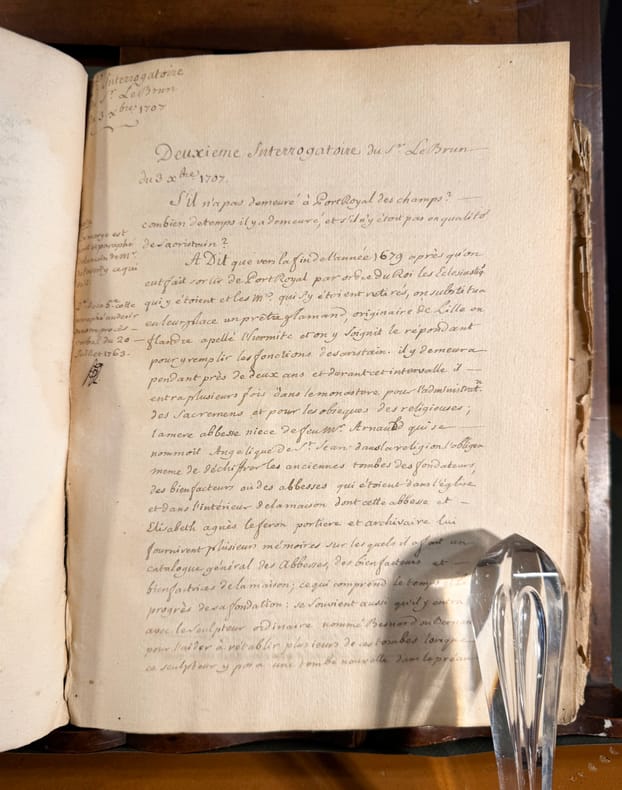 Interrogatoire
Sr. LeBrun
3 xbre 1707
Deuxieme Interrogatoire du Sr. LeBrun
du 3 xbre 1707.
S'il n'a pas demeuré à PortRoyal des champs?
combien de temps il y a demeuré, et s'il n'y étoit pas en qualité
de sacristain?
A Dit que vers la fin de l'année 1679 après qu'on
eut fait sortir de PortRoyal par ordre du Roi les Eclesiastiq
qui y étoient et les Mrs. qui s'y étoient retirés, on substitua
en leur place un prêtre flamand, originaire de Lille en
flandre apellé et on y joignit le répondant
pour y remplir les fonctions de saristain. il y demeura
pendant près de deux ans et durant cet intervalle il
entra plusieurs fois dans le monastere pour l'administratn.
des Sacremens et pour les obséques des religieuses;
la mere abbesse niece de feu Mr. Arnauld qui se
nommoit Angelique de St. Jean dans la religion l'obligea
meme de déchiffrer les anciennes tombes des fondateurs,
des bienfacteurs ou des abbesses qui étoient dans l'église
et dans l'intérieur de la maison dont cette abbesse et
Elisabeth agnès leferon portiere et archivaire lui
fournirent plusieurs mémoires sur lesquels il a fait un
catalogue général des Abbesses, des bienfacteurs et
bienfactrices de la maison; ce qui comprend le
progrès de sa fondation: se souvient aussi qu'il y
avec le sculpteur ordinaire nommé Besnard ou
pour l'aider à rétablir plusieurs de ces tombes lorsque
ce sculpteur y posa une tombe nouvelle dans le
marge est
paraphé
de Mr.
ce qui
cotte
procès
verbal du 20
Juillet 1763.